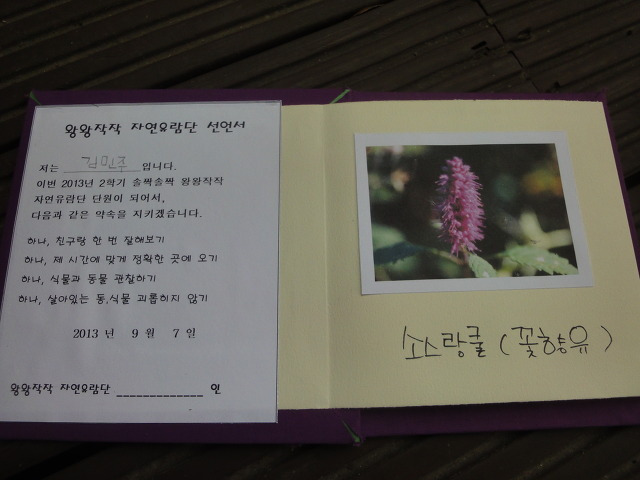 왕왕작작 자연유람단 선언서
저는 김민주 입니다.
이번 2013년 2학기 솔짝솔짝 왕왕작작
자연유람단 단원이 되어서,
다음과 같은 약속을 지키겠습니다.
하나, 친구랑 한 번 잘해보기
하나, 제 시간에 맞게 정확한 곳에 오기
하나, 식물과 동물 관찰하기
하나, 살아있는 동,식물 괴롭히지 않기
2013 년 9 월 7 일
왕왕작작 자연유람단 _____________ 인
소스랑쿨 (꽃향유)